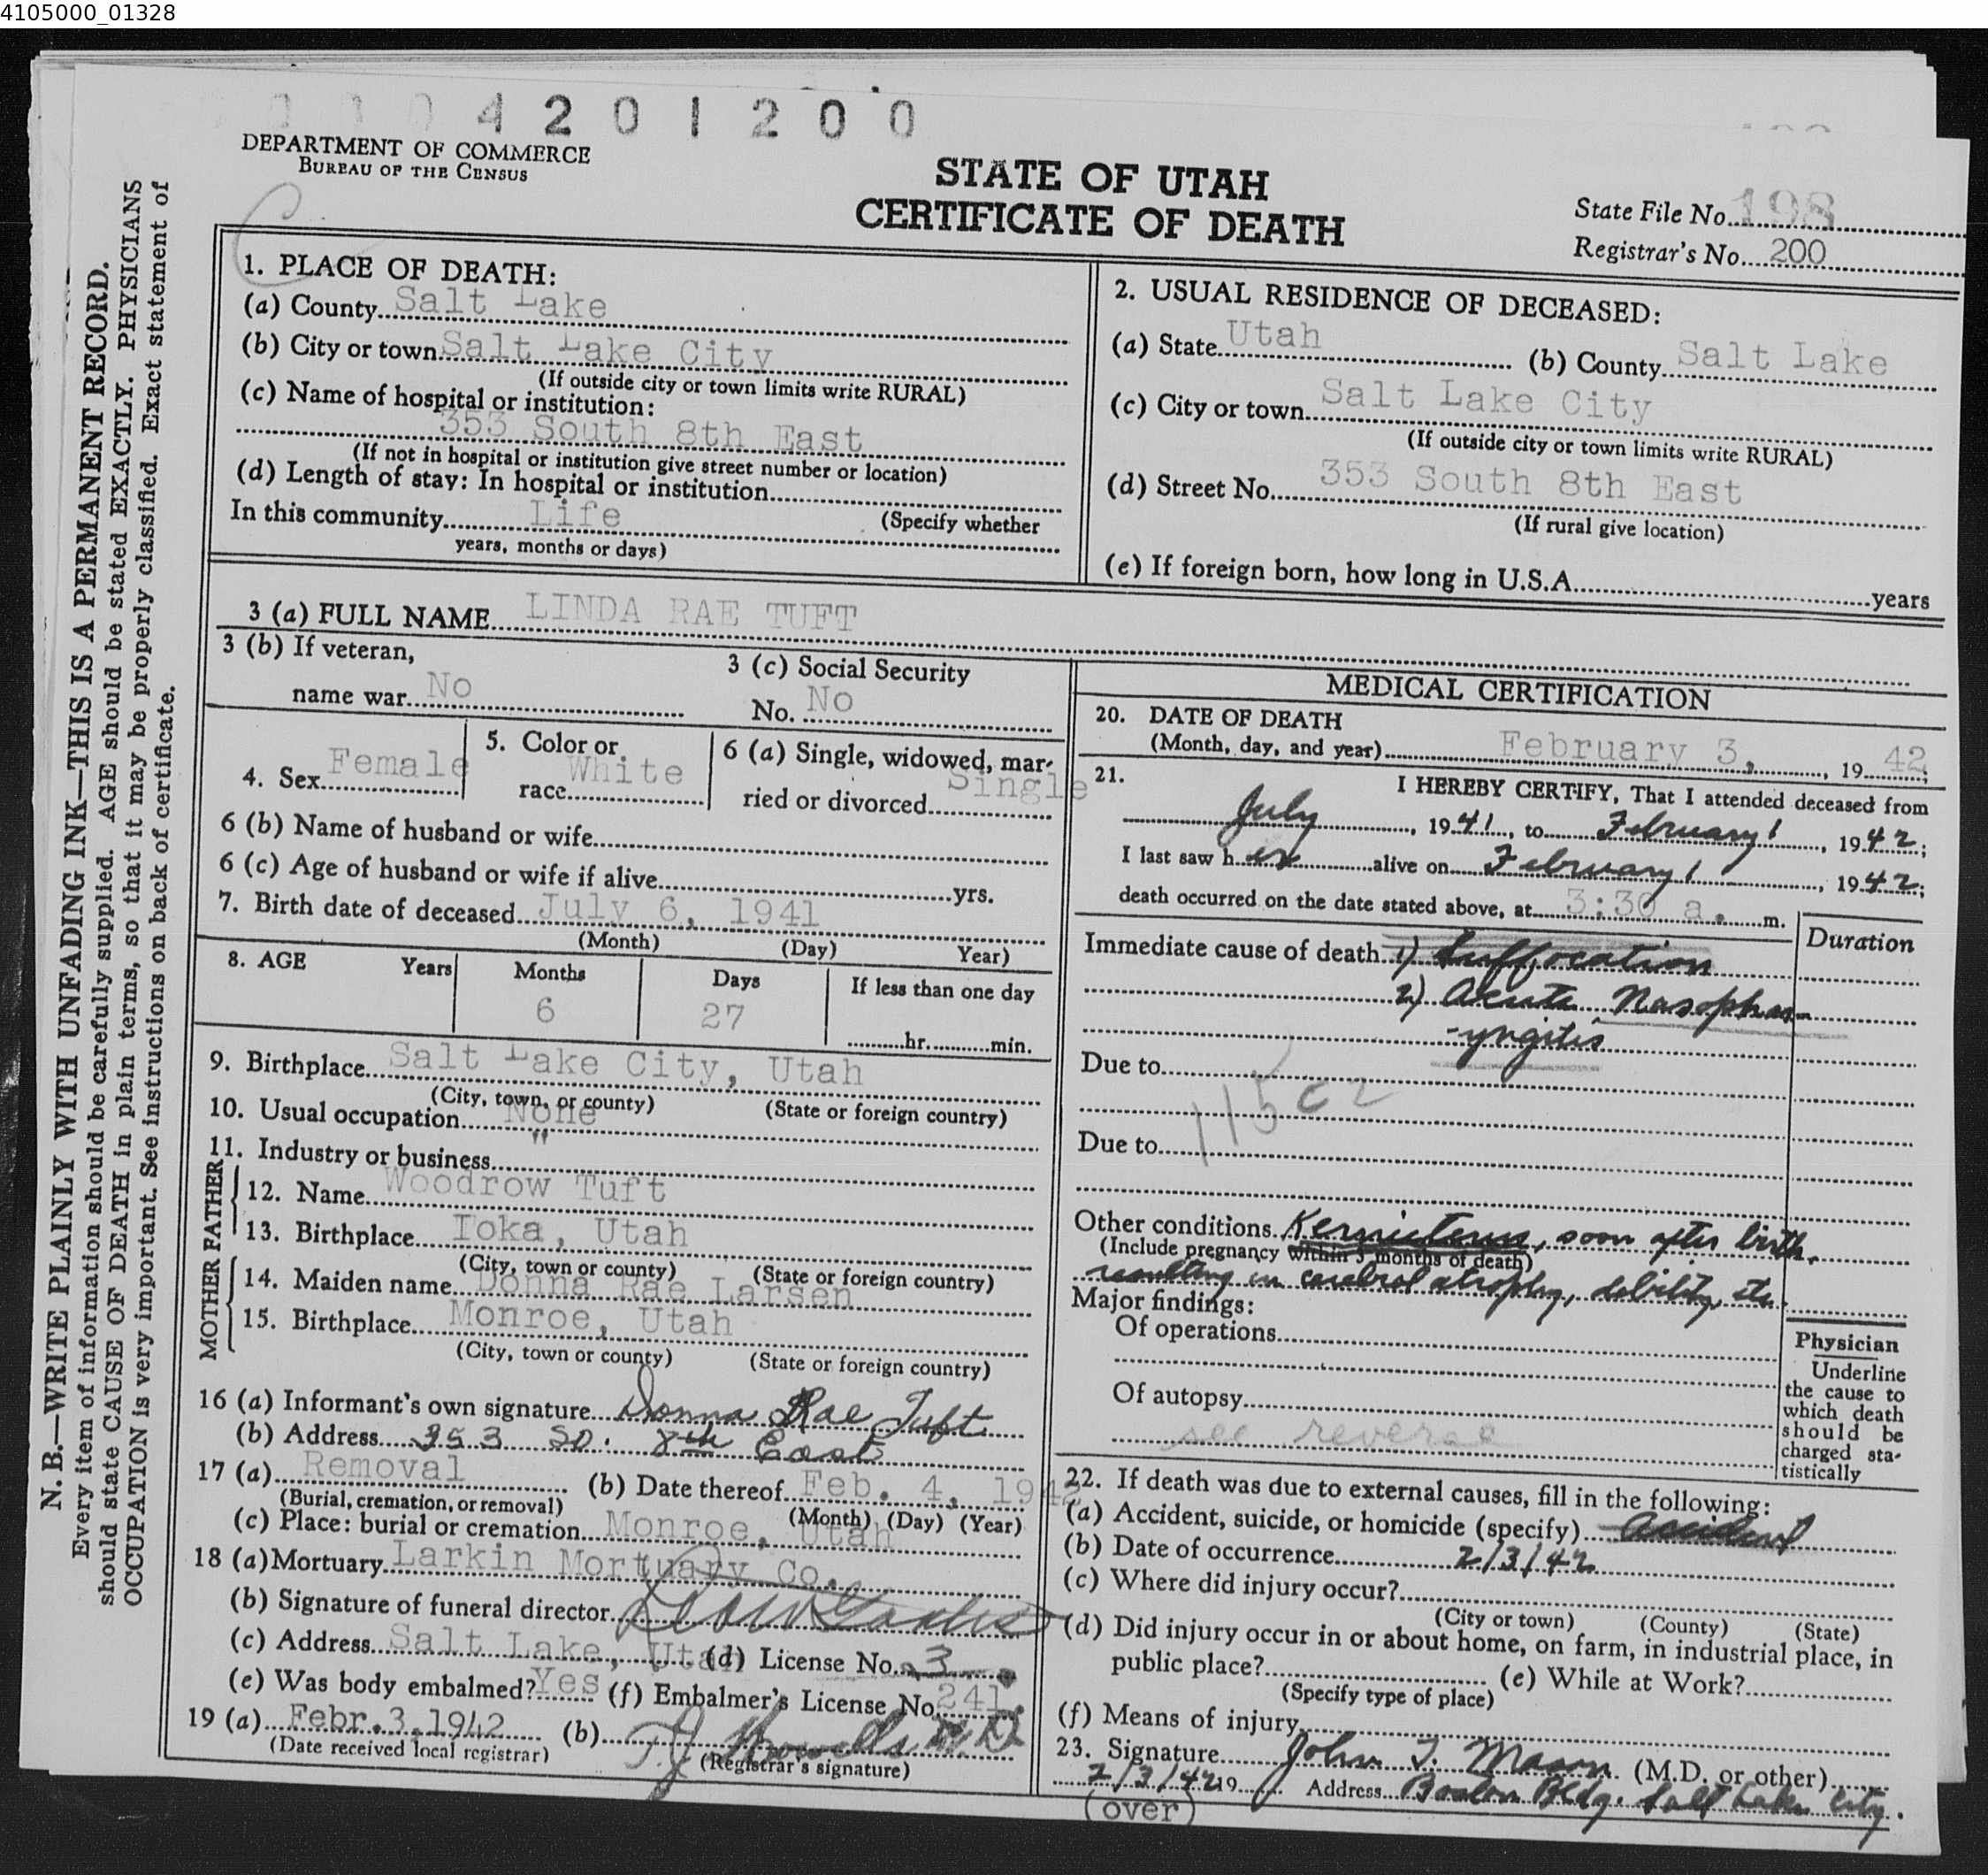 4105000_01328
4 2 0 1 2 0 0
DEPARTMENT OF COMMERCE
BUREAU OF THE CENSUS
STATE OF UTAH
CERTIFICATE OF DEATH
State File No. 198
Registrar's No. 200
N. B.—WRITE PLAINLY WITH UNFADING INK—THIS IS A PERMANENT RECORD.
Every item of information should be carefully supplied. AGE should be stated EXACTLY. PHYSICIANS
should state CAUSE OF DEATH in plain terms, so that it may be properly classified. Exact statement of
OCCUPATION is very important. See instructions on back of certificate.
1. PLACE OF DEATH:
(a) County Salt Lake
(b) City or town Salt Lake City
(If outside city or town limits write RURAL)
(c) Name of hospital or institution:
353 South 8th East
(If not in hospital or institution give street number or location)
(d) Length of stay: In hospital or institution
In this community Life (Specify whether
years, months or days)
2. USUAL RESIDENCE OF DECEASED:
(a) State Utah (b) County Salt Lake
(c) City or town Salt Lake City
(If outside city or town limits write RURAL)
(d) Street No. 353 South 8th East
(If rural give location)
(e) If foreign born, how long in U.S.A. years
3 (a) FULL NAME LINDA RAE TUFT
3 (b) If veteran,
name war No
3 (c) Social Security
No. No
4. Sex Female
5. Color or
race White
6 (a) Single, widowed, mar-
ried or divorced Single
6 (b) Name of husband or wife
6 (c) Age of husband or wife if alive yrs.
7. Birth date of deceased July 6, 1941
(Month) (Day) Year)
8. AGE Years Months Days If less than one day
6 27 hr. min.
9. Birthplace Salt Lake City, Utah
(City, town, or county) (State or foreign country)
10. Usual occupation None
11. Industry or business "
FATHER
12. Name Woodrow Tuft
13. Birthplace Ioka, Utah
(City, town or county) (State or foreign country)
MOTHER
14. Maiden name Donna Rae Larsen
15. Birthplace Monroe, Utah
(City, town or county) (State or foreign country)
16 (a) Informant's own signature Donna Rae Tuft
(b) Address 353 So. 8th East
17 (a) Removal (b) Date thereof Feb. 4, 1942
(Burial, cremation, or removal) (Month) (Day) (Year)
(c) Place: burial or cremation Monroe, Utah
18 (a) Mortuary Larkin Mortuary Co.
(b) Signature of funeral director
(c) Address Salt Lake, Utah (d) License No. 3
(e) Was body embalmed? Yes (f) Embalmer's License No. 241
19 (a) Febr. 3, 1942 (b) T. J. Howells M.D.
(Date received local registrar) (Registrar's signature)
MEDICAL CERTIFICATION
20. DATE OF DEATH
(Month, day, and year) February 3, 19 42;
21. I HEREBY CERTIFY, That I attended deceased from
July, 1941, to February 1, 1942;
I last saw her alive on February 1, 1942;
death occurred on the date stated above, at 3:30 a. m.
Duration
Immediate cause of death 1) Suffocation
2) Acute Nasophar-
-yngitis
Due to
115 c2
Due to
Other conditions Kernicterus, soon after birth.
(Include pregnancy within 3 months of death)
resulting in cerebral atrophy, debility, etc.
Major findings:
Of operations
Of autopsy
see reverse
Physician
Underline
the cause to
which death
should be
charged sta-
tistically
22. If death was due to external causes, fill in the following:
(a) Accident, suicide, or homicide (specify) Accident
(b) Date of occurrence 2/3/42
(c) Where did injury occur?
(City or town) (County) (State)
(d) Did injury occur in or about home, on farm, in industrial place, in
public place? (e) While at Work?
(Specify type of place)
(f) Means of injury
23. Signature John T. Mason (M.D. or other)
2/3/42 19 Address Boston Bldg. Salt Lake City.
(over)